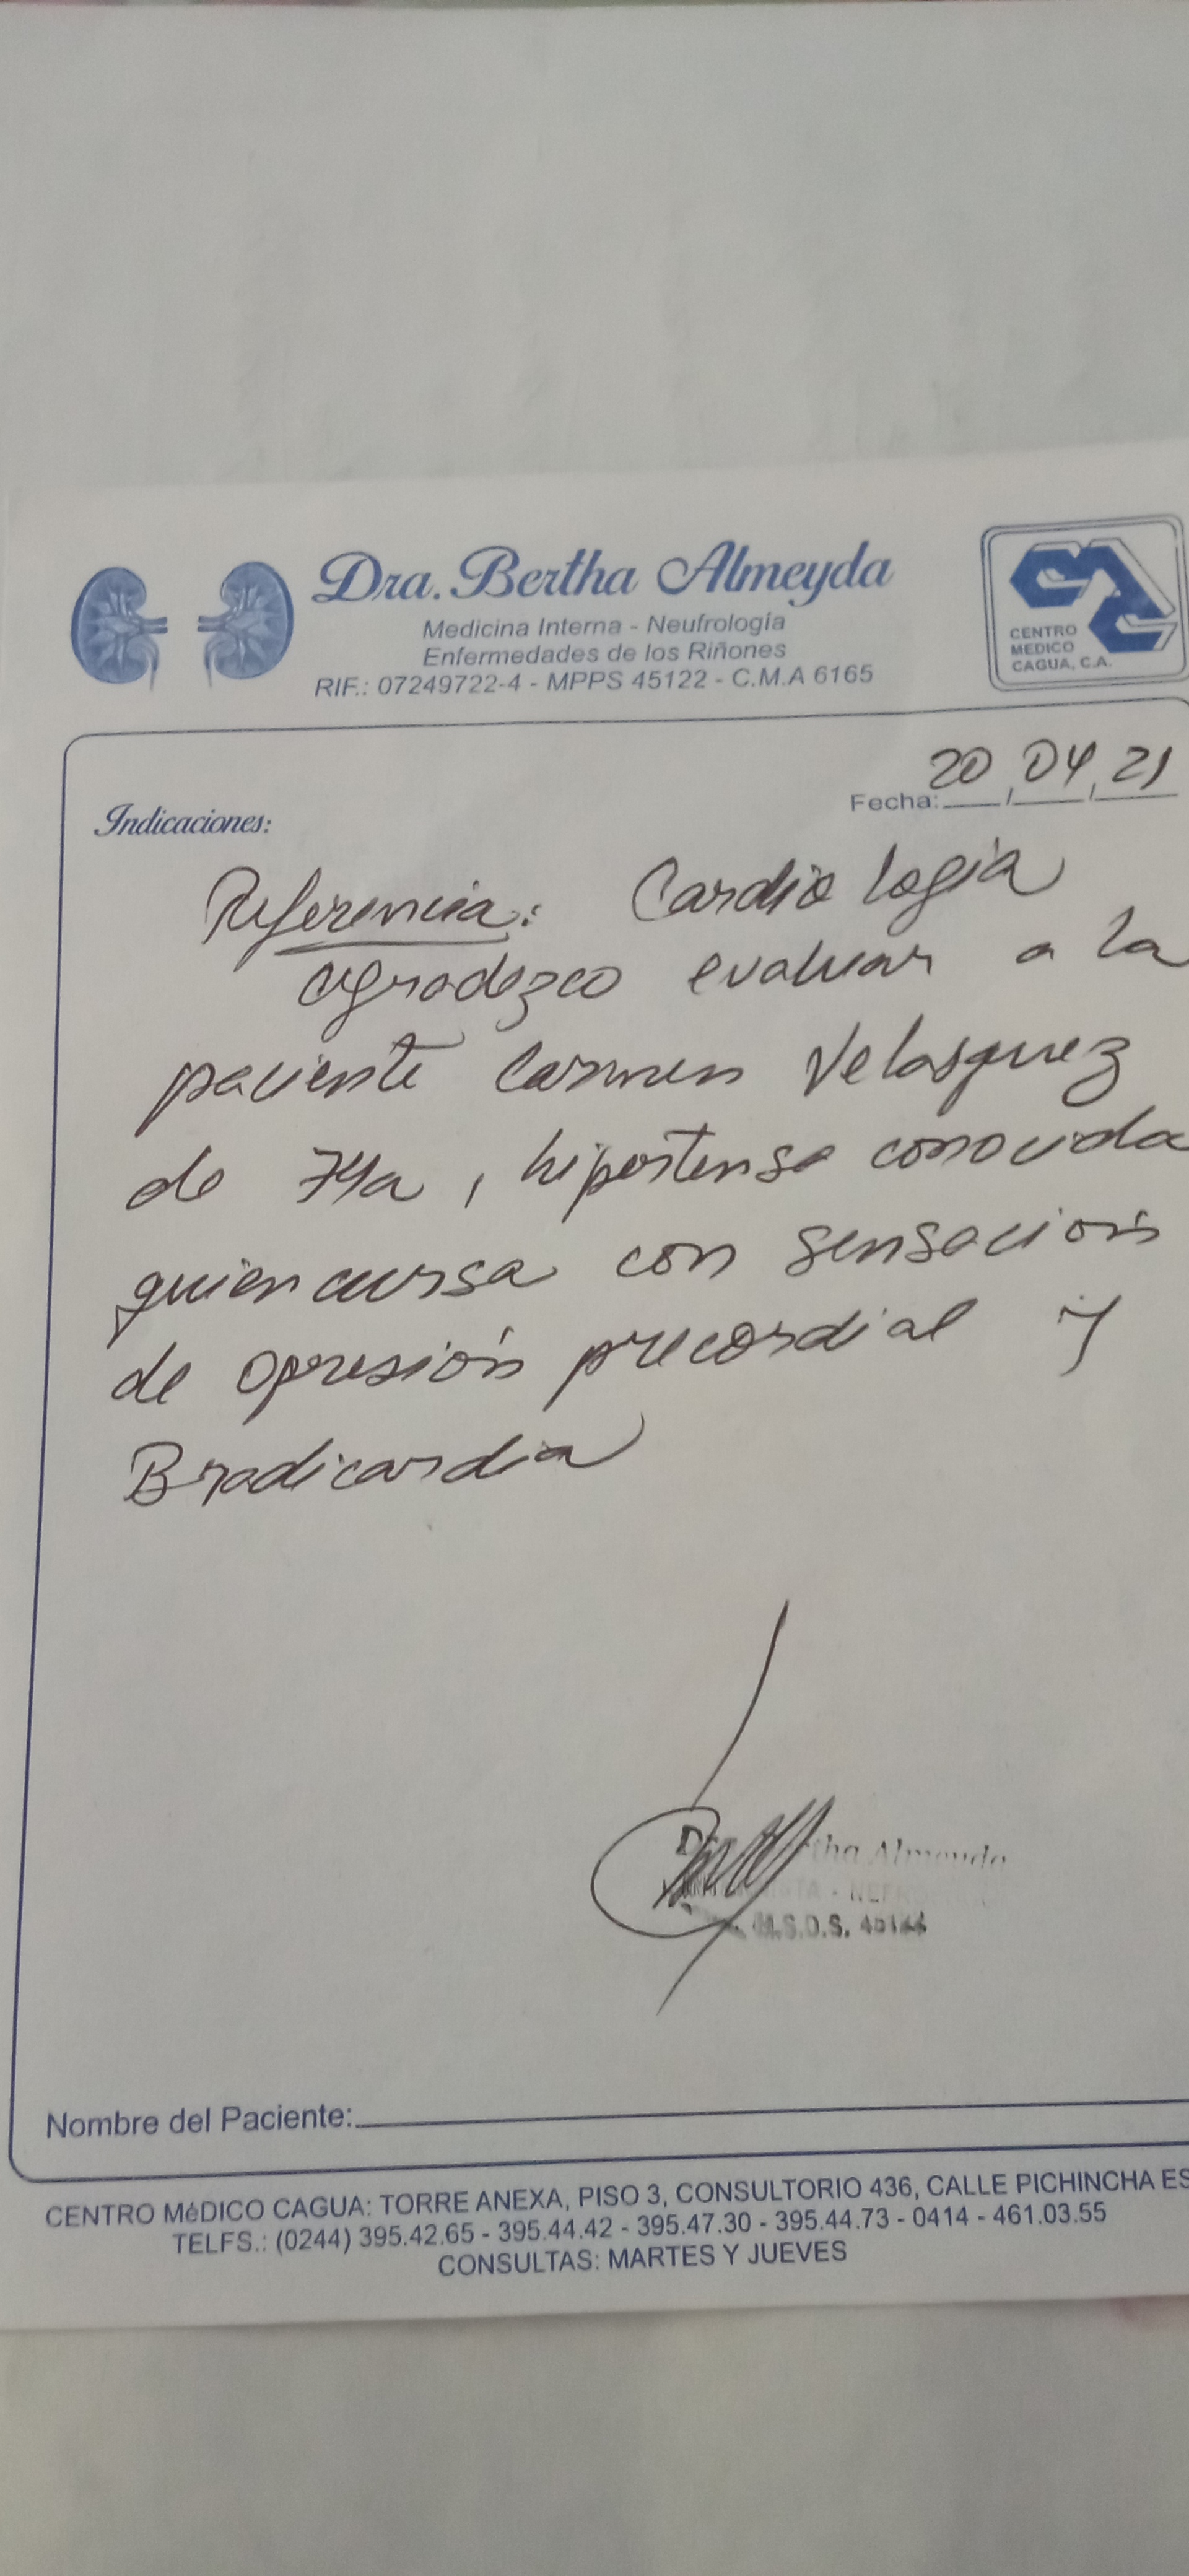 Dra. Bertha Almeyda
Medicina Interna - Neufrología
Enfermedades de los Riñones
RIF.: 07249722-4 - MPPS 45122 - C.M.A 6165
CENTRO
MEDICO
CAGUA, C.A.
Fecha: 20/04/21
Indicaciones:
Referencia: Cardiología
agradezco evaluar a la
paciente Carmen Velasquez
de 74a, hipertensa conocida
quien cursa con sensación
de opresión precordial y
Bradicardia
tha Almeyda
M.S.D.S.
Nombre del Paciente:
CENTRO MéDICO CAGUA: TORRE ANEXA, PISO 3, CONSULTORIO 436, CALLE PICHINCHA ES
TELFS.: (0244) 395.42.65 - 395.44.42 - 395.47.30 - 395.44.73 - 0414 - 461.03.55
CONSULTAS: MARTES Y JUEVES